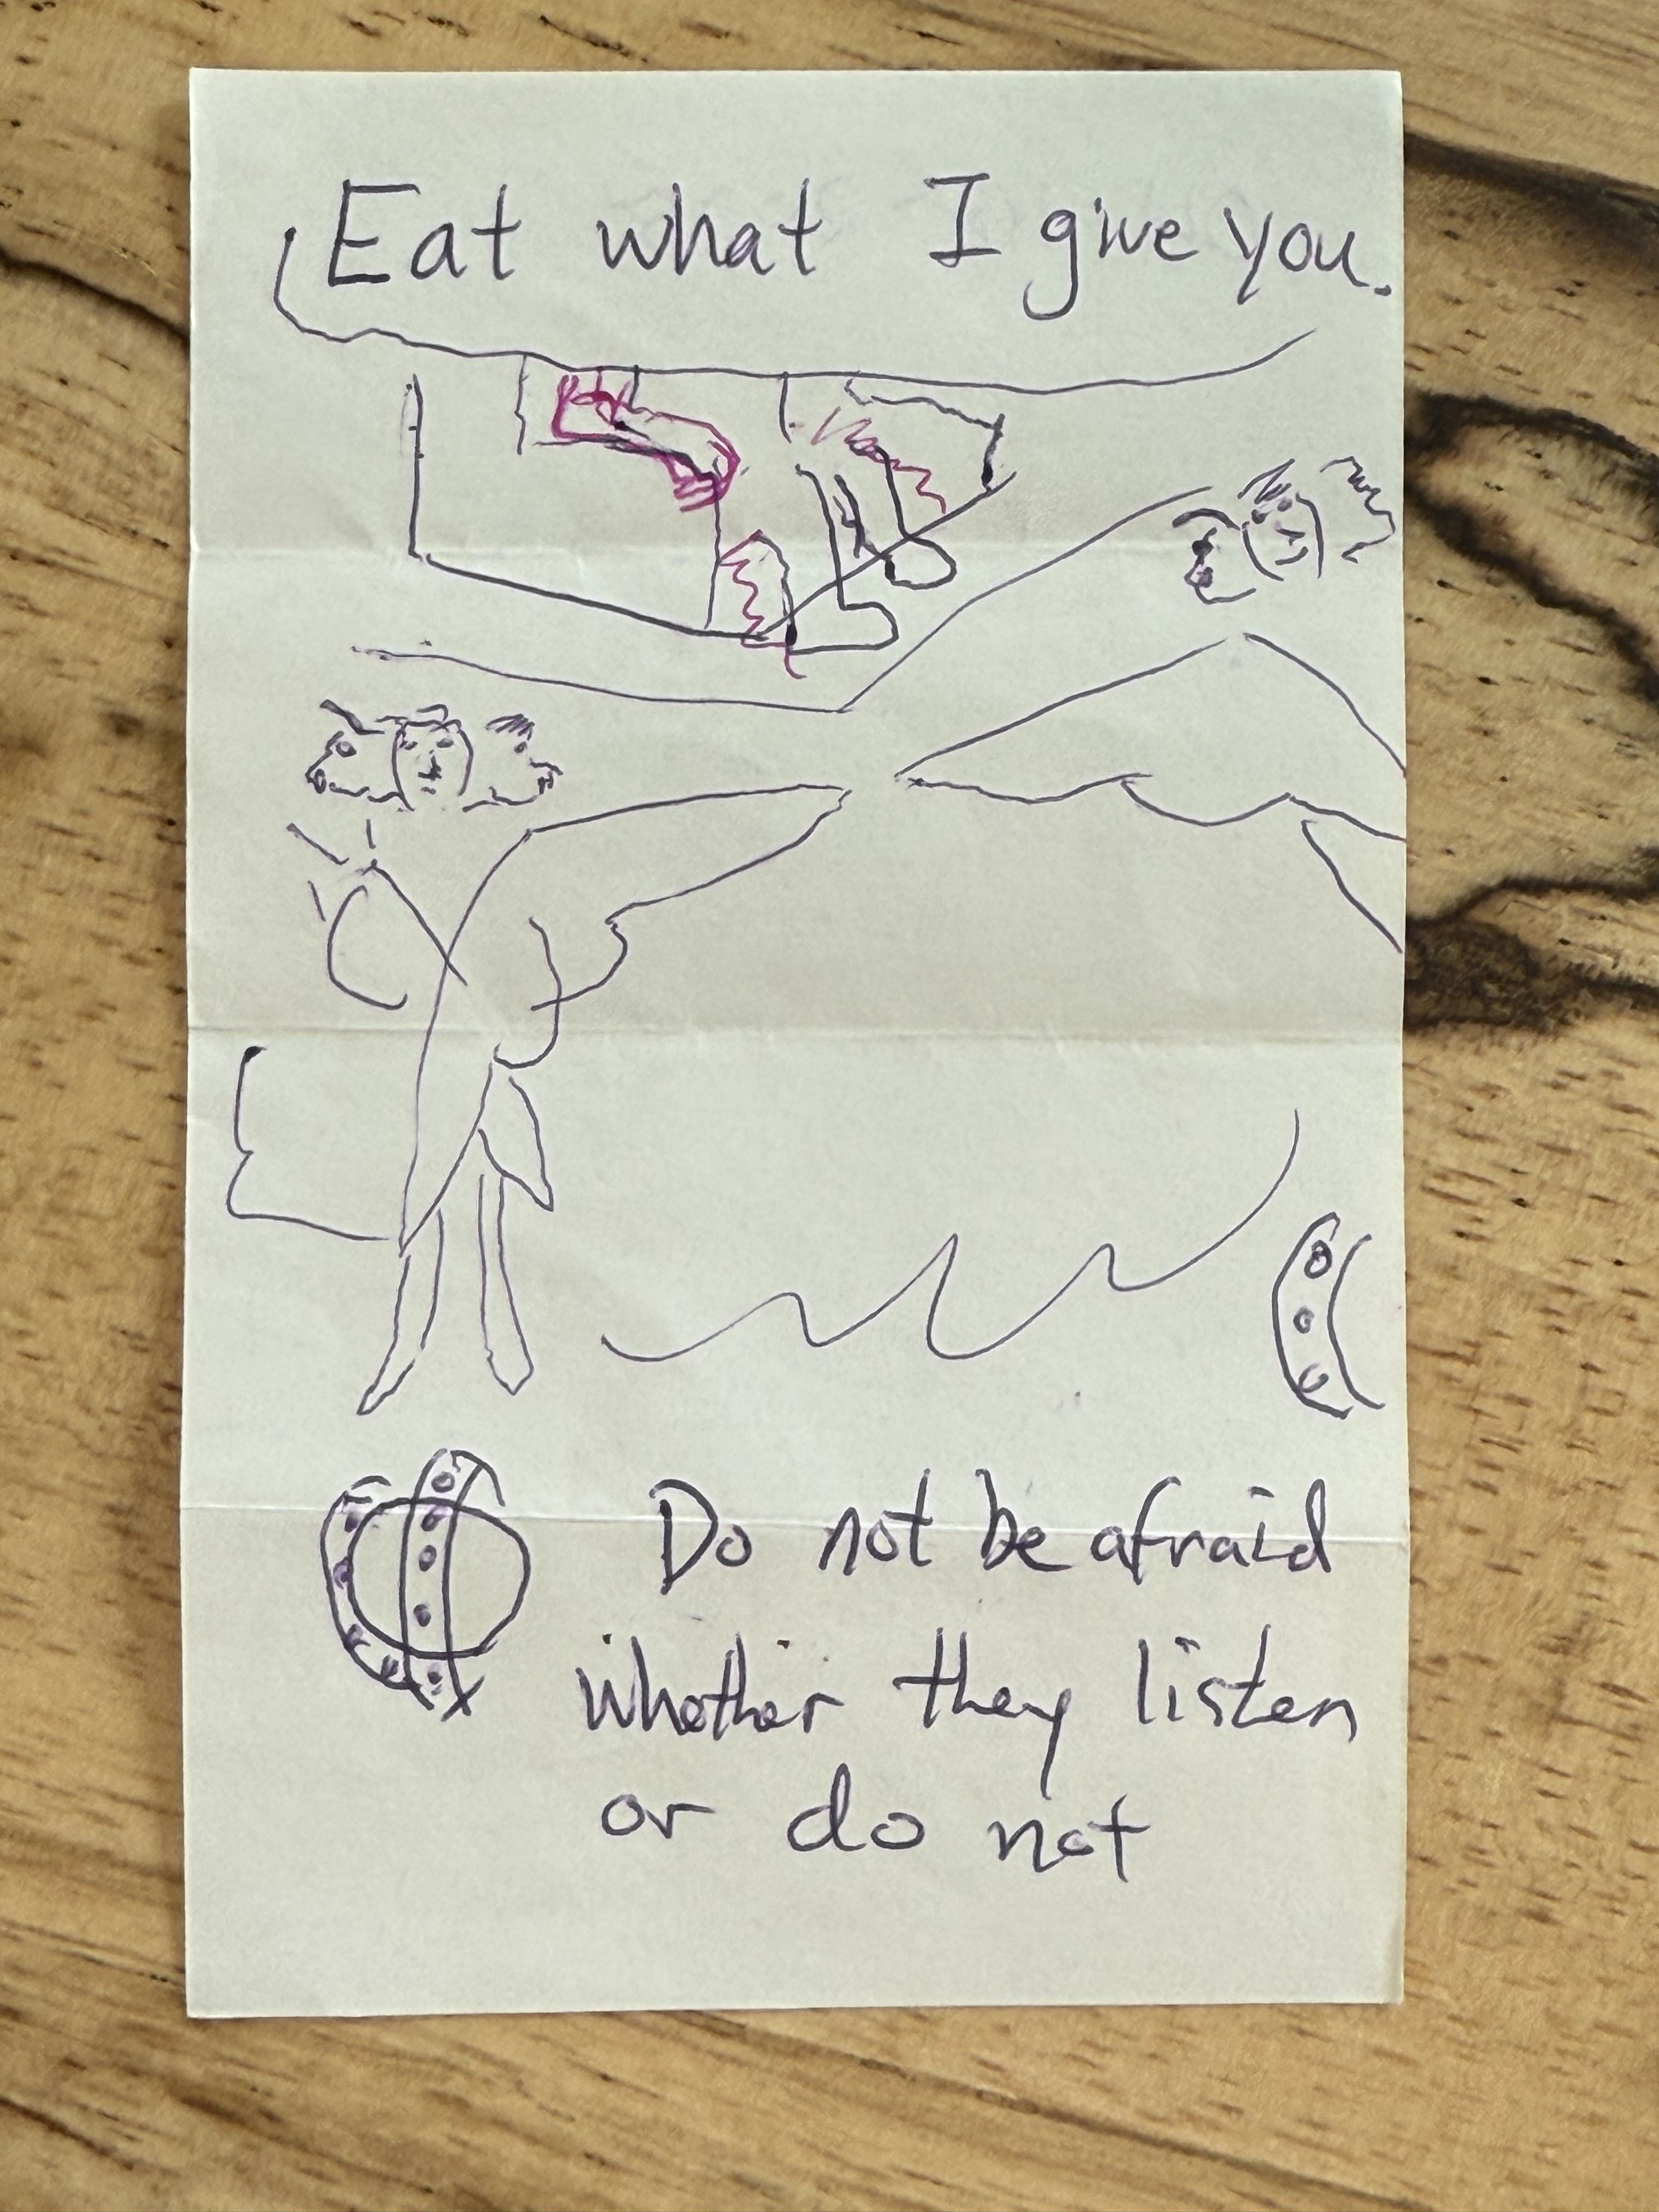 Eat what I give you.
Do not be afraid
whether they listen
or do not